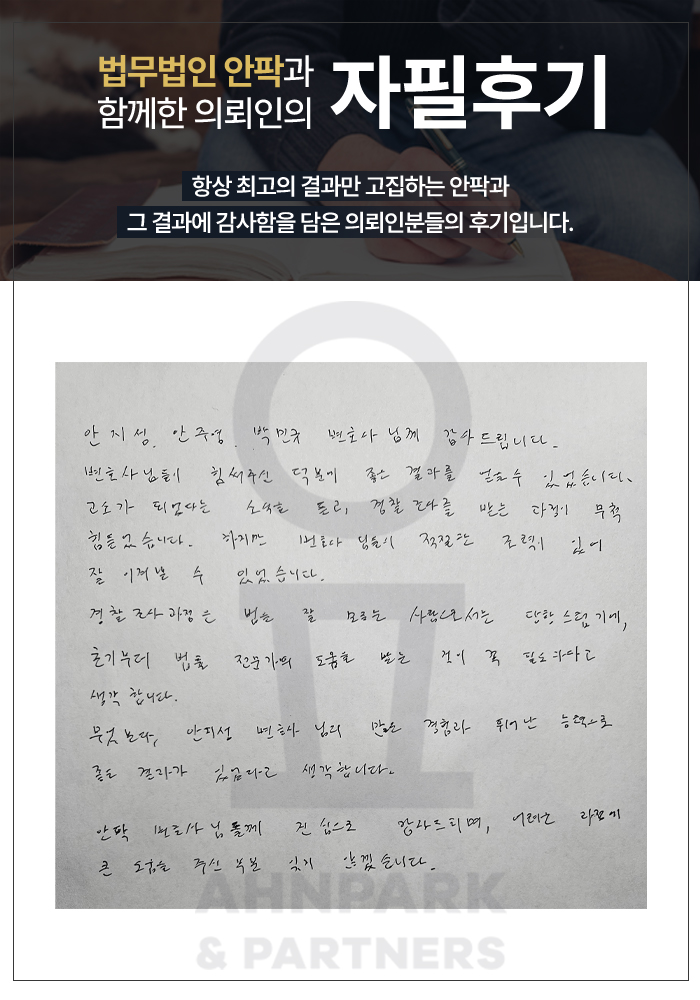 법무법인 안팍과
함께한 의뢰인의
자필후기
항상 최고의 결과만 고집하는 안팍과
그 결과에 감사함을 담은 의뢰인분들의 후기입니다.
안지성, 안주영, 박민규 변호사님께 감사드립니다.
변호사님들이 힘써주신 덕분에 좋은 결과를 얻을 수 있었습니다.
고소가 되었다는 소식을 듣고, 경찰조사를 받는 과정이 무척
힘들었습니다. 하지만 변호사님들의 적절한 조력이 있어
잘 이겨낼 수 있었습니다.
경찰조사과정은 법을 잘 모르는 사람으로서는 당황스럽기에,
초기부터 법률 전문가의 도움을 받는 것이 꼭 필요하다고
생각합니다.
무엇보다, 안지성 변호사님의 많은 경험과 뛰어난 능력으로
좋은 결과가 있었다고 생각합니다.
안팍 변호사님들께 진심으로 감사드리며, 어려운 과정에
큰 도움을 주신 부분 잊지 않겠습니다.
AHNPARK
& PARTNERS